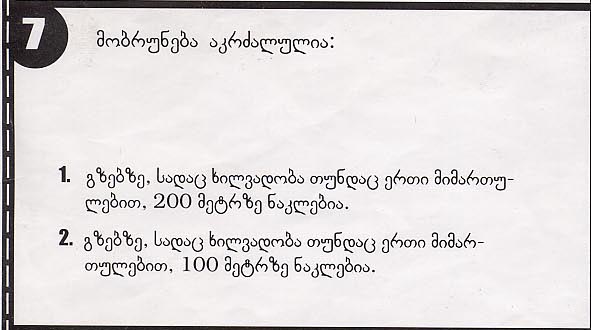 7
მობრუნება აკრძალულია:
1. გზებზე, სადაც ხილვადობა თუნდაც ერთი მიმართუ-
ლებით, 200 მეტრზე ნაკლებია.
2. გზებზე, სადაც ხილვადობა თუნდაც ერთი მიმარ-
თულებით, 100 მეტრზე ნაკლებია.